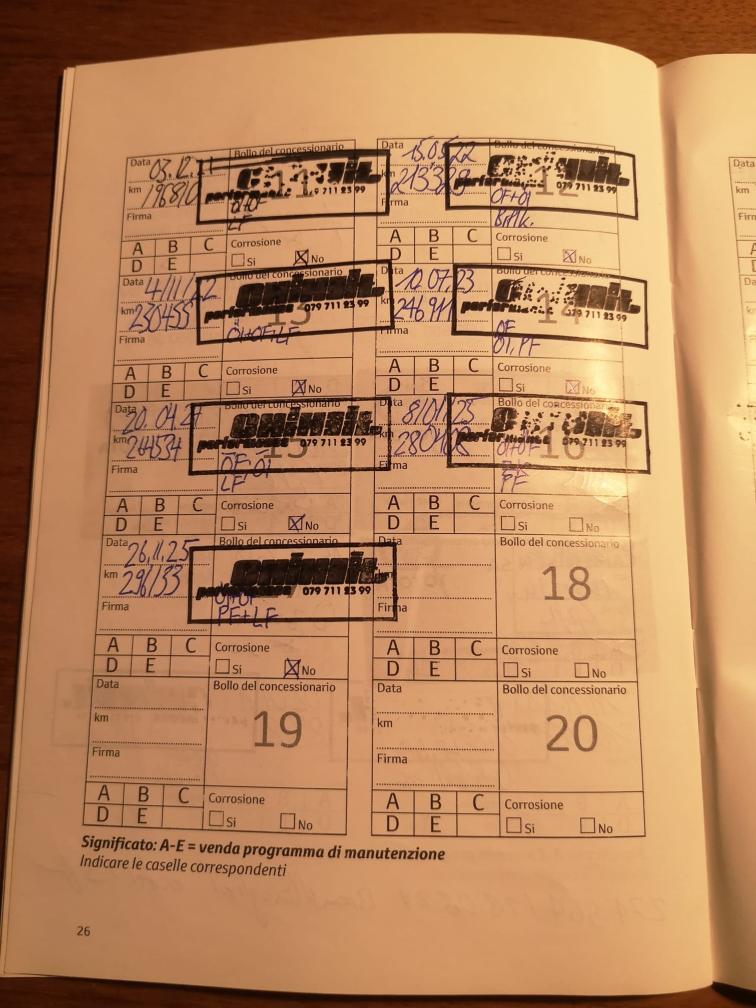 Data 03.12.21
km 196810
Firma
Bollo del concessionario
11
performance 079 711 23 99
LF
A B C
D E
Corrosione
Si No
Data 15.05.22
km 213329
Bollo del concessionario
12
performance 079 711 23 99
OF+OI
A B C
D E
Corrosione
Si No
Data 4/11/22
km 230455
Firma
Bollo del concessionario
13
performance 079 711 23 99
A B C
D E
Corrosione
Si No
Data 12.07.23
km 246911
Firma
Bollo del concessionario
14
performance 079 711 23 99
OF
OI, PF
A B C
D E
Corrosione
Si No
Data 20.04.24
km 264534
Firma
Bollo del concessionario
15
performance 079 711 23 99
ÖF, ÖI
LF
A B C
D E
Corrosione
Si No
Data 8/01/25
km
Firma
Bollo del concessionario
16
performance 079 711 23 99
PF
A B C
D E
Corrosione
Si No
Data 26.11.25
km 296133
Firma
Bollo del concessionario
performance 079 711 23 99
PF+LF
A B C
D E
Corrosione
Si No
Data
Firma
Bollo del concessionario
18
A B C
D E
Corrosione
Si No
Data
km
Firma
Bollo del concessionario
19
A B C
D E
Corrosione
Si No
Data
km
Firma
Bollo del concessionario
20
A B C
D E
Corrosione
Si No
Significato: A-E = venda programma di manutenzione
Indicare le caselle correspondenti
26